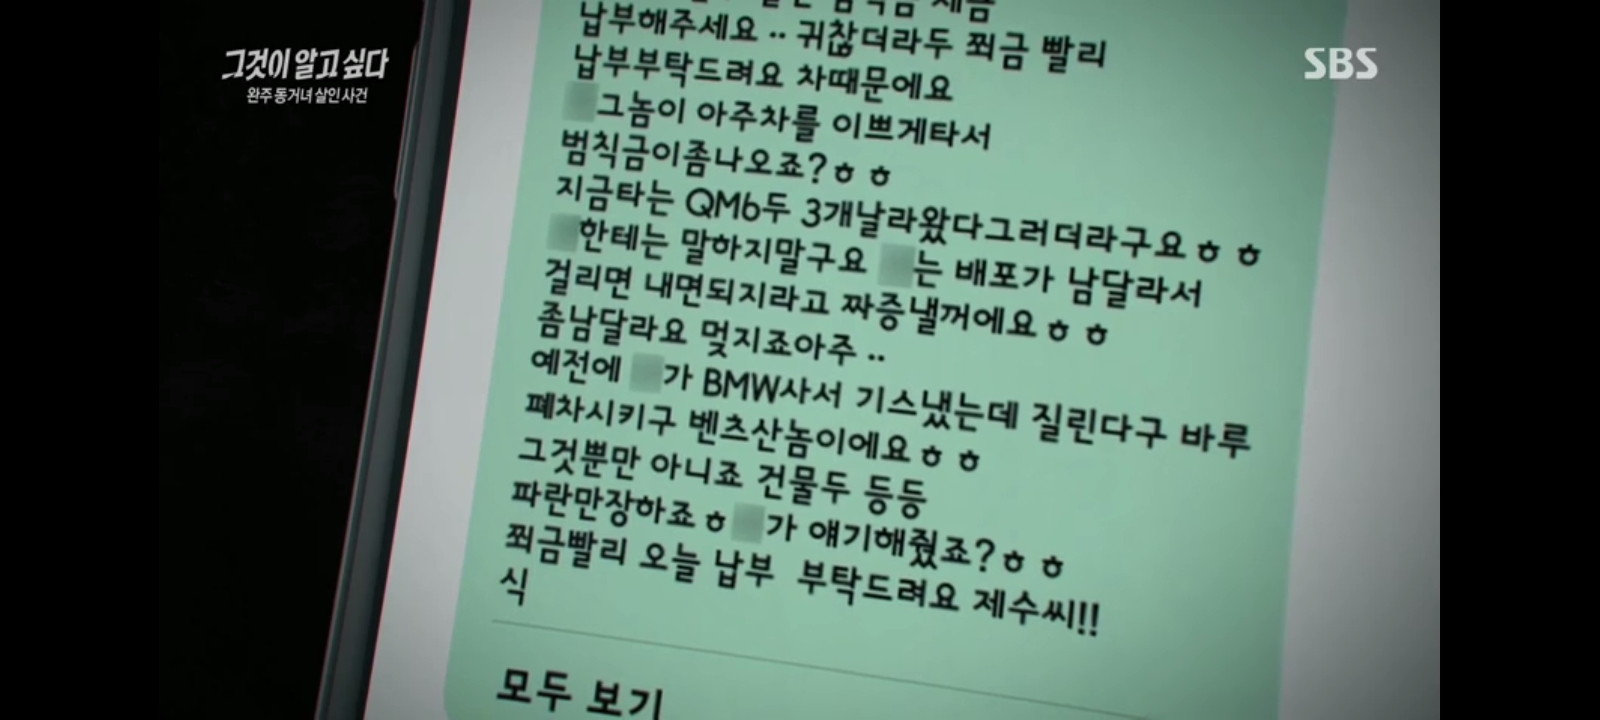 그것이 알고 싶다
완주 동거녀 살인 사건
SBS
납부해주세요 .. 귀찮더라두 쬐금 빨리
납부부탁드려요 차때문에요
그놈이 아주차를 이쁘게타서
범칙금이좀나오죠?ㅎㅎ
지금타는 QM6두 3개날라왔다그러더라구요ㅎㅎ
한테는 말하지말구요 는 배포가 남달라서
걸리면 내면되지라고 짜증낼꺼에요ㅎㅎ
좀남달라요 멎지죠아주 ..
예전에 가 BMW사서 기스냈는데 질린다구 바루
폐차시키구 벤츠산놈이에요ㅎㅎ
그것뿐만 아니죠 건물두 등등
파란만장하죠ㅎ 가 얘기해줬죠?ㅎㅎ
쬐금빨리 오늘 납부 부탁드려요 제수씨!!
식
모두 보기